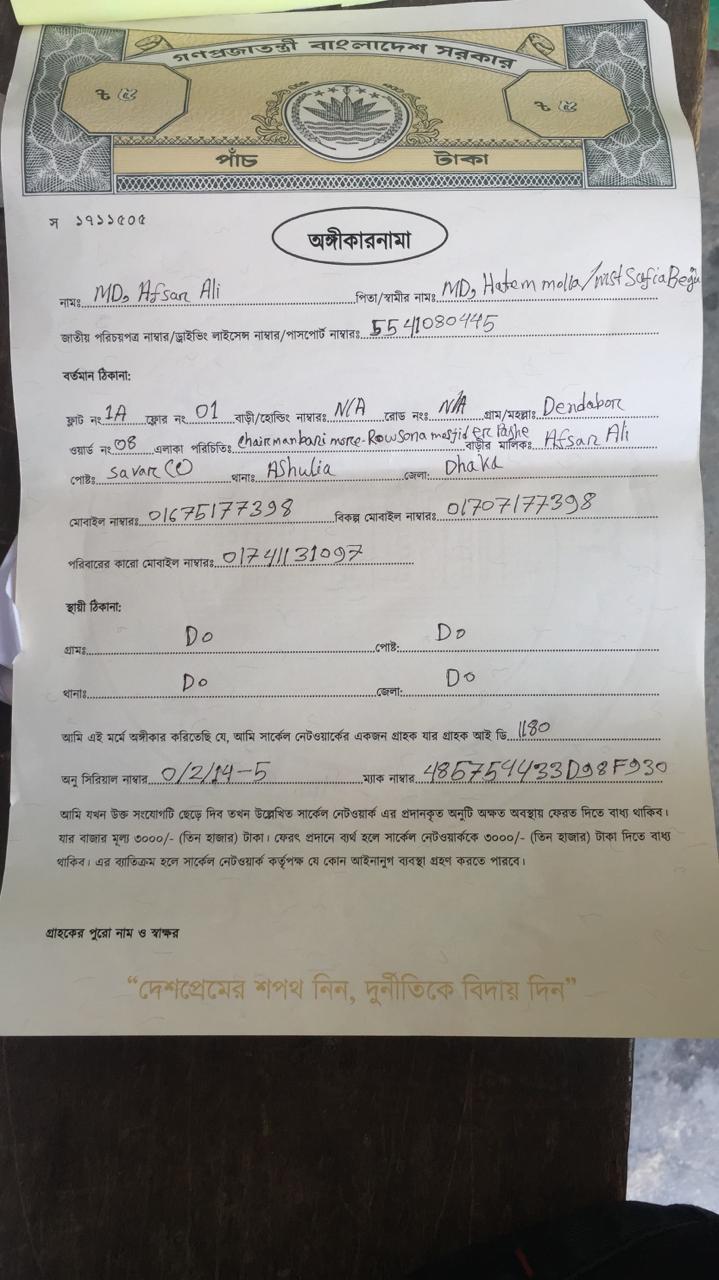 গণপ্রজাতন্ত্রী বাংলাদেশ সরকার
৳ ৫ ৳ ৫
পাঁচ টাকা
স ১৭১১৫০৫
অঙ্গীকারনামা
নামঃ MD, Afsar Ali পিতা/স্বামীর নামঃ MD, Hatem molla/mst Safia Begu
জাতীয় পরিচয়পত্র নাম্বার/ড্রাইভিং লাইসেন্স নাম্বার/পাসপোর্ট নাম্বারঃ 5541080445
বর্তমান ঠিকানা:
ফ্লাট নং 1A ফ্লোর নং 01 বাড়ী/হোল্ডিং নাম্বারঃ N/A রোড নংঃ N/A গ্রাম/মহল্লাঃ Dendabor
ওয়ার্ড নং 08 এলাকা পরিচিতিঃ chairmanbari morce-Rowsona mesjid er Pashe বাড়ীর মালিকঃ Afsar Ali
পোষ্টঃ Savar থানাঃ AShulia জেলা: Dhaka
মোবাইল নাম্বারঃ 01675177398 বিকল্প মোবাইল নাম্বারঃ 01707177398
পরিবারের কারো মোবাইল নাম্বারঃ 01741131097
স্থায়ী ঠিকানা:
গ্রামঃ Do পোষ্ট: Do
থানাঃ Do জেলা: Do
আমি এই মর্মে অঙ্গীকার করিতেছি যে, আমি সার্কেল নেটওয়ার্কের একজন গ্রাহক যার গ্রাহক আই ডি 1180
অনু সিরিয়াল নাম্বার 0/2/14-5 ম্যাক নাম্বার 485754433D98F930
আমি যখন উক্ত সংযোগটি ছেড়ে দিব তখন উল্লেখিত সার্কেল নেটওয়ার্ক এর প্রদানকৃত অনুটি অক্ষত অবস্থায় ফেরত দিতে বাধ্য থাকিব।
যার বাজার মূল্য ৩০০০/- (তিন হাজার) টাকা। ফেরৎ প্রদানে ব্যর্থ হলে সার্কেল নেটওয়ার্ককে ৩০০০/- (তিন হাজার) টাকা দিতে বাধ্য
থাকিব। এর ব্যতিক্রম হলে সার্কেল নেটওয়ার্ক কর্তৃপক্ষ যে কোন আইনানুগ ব্যবস্থা গ্রহণ করতে পারবে।
গ্রাহকের পুরো নাম ও স্বাক্ষর
“দেশপ্রেমের শপথ নিন, দুর্নীতিকে বিদায় দিন”